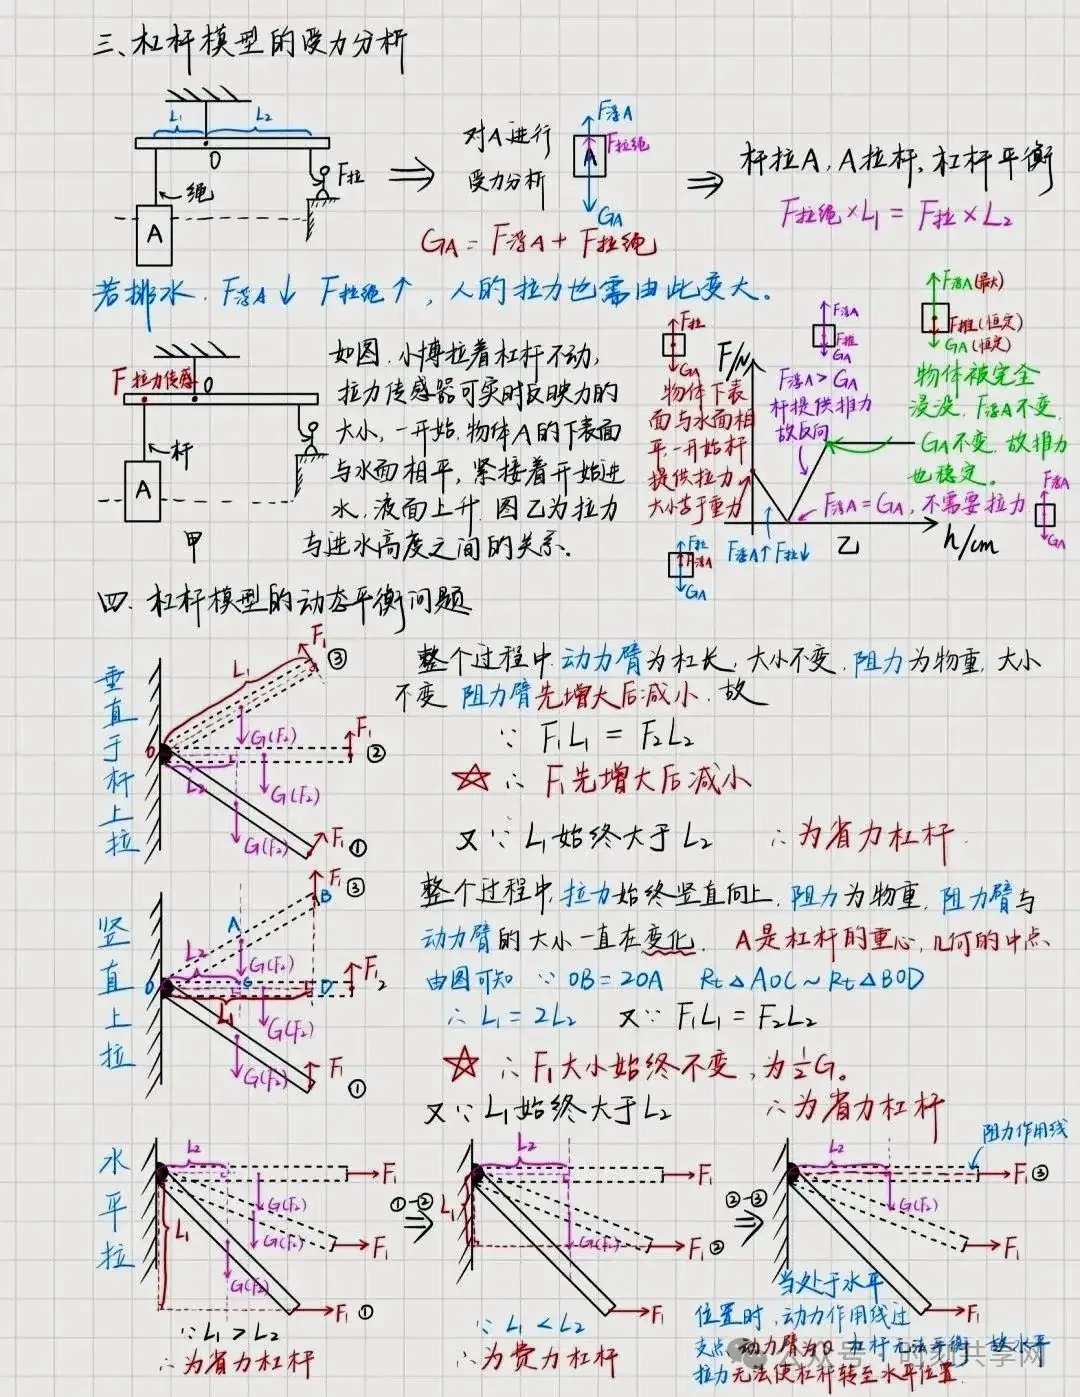 三、杠杆模型的受力分析
L₁ L₂
O
F拉
绳
A
对A进行
受力分析
F浮A
F拉绳
A
GA
GA = F浮A + F拉绳
杆拉A, A拉杆, 杠杆平衡
F拉绳×L₁ = F拉×L₂
若排水, F浮A↓ F拉绳↑, 人的拉力也需由此变大。
F拉力传感
O
杆
A
甲
如图, 小博拉着杠杆不动,
拉力传感器可实时反映力的
大小, 一开始, 物体A的下表面
与水面相平, 紧接着开始进
水, 液面上升, 图乙为拉力
与进水高度之间的关系。
F拉
GA
物体下表
面与水面相
平, 一开始杆
提供拉力,
大小等于重力
F/N
F浮A
F推
GA
F浮A > GA
杆提供推力
故反向
F浮A(最大)
F推(恒定)
GA(恒定)
物体被完全
浸没, F浮A不变,
GA不变, 故推力
也稳定。
F浮A = GA, 不需要拉力
F浮A
GA
F拉
F浮A
GA
F浮A↑ F拉↓
乙
h/cm
四、杠杆模型的动态平衡问题
垂直于杆上拉
F₁ ③
L₁
G(F₂)
F₁ ②
O
L₂
G(F₂)
G(F₂)
F₁ ①
整个过程中, 动力臂为杠长, 大小不变, 阻力为物重, 大小
不变, 阻力臂先增大后减小, 故
∵ F₁L₁ = F₂L₂
☆ ∴ F₁先增大后减小
又∵ L₁始终大于L₂ ∴为省力杠杆.
竖直上拉
F₁ ③
B
A
L₂
G(F₂)
O C D
F₁ ②
L₁
G(F₂)
G(F₂)
F₁ ①
整个过程中, 拉力始终竖直向上, 阻力为物重, 阻力臂与
动力臂的大小一直在变化. A是杠杆的重心, 几何的中点
由图可知 ∵ OB=2OA Rt△AOC∽Rt△BOD
∴ L₁=2L₂ 又∵ F₁L₁=F₂L₂
☆ ∴ F₁大小始终不变, 为½G。
又∵ L₁始终大于L₂ ∴为省力杠杆
水平拉
L₂
F₁
G(F₂)
L₁
G(F₂)
F₁
G(F₂)
F₁ ①
∵ L₁>L₂
∴为省力杠杆
①-②
⇒
L₂
F₁
L₁
G(F₂)
F₁ ②
F₁
∵ L₁<L₂
∴为费力杠杆
②-③
⇒
阻力作用线
L₂
F₁ ③
G(F₂)
F₁
F₁
当处于水平
位置时, 动力作用线过
支点, 动力臂为0, 杠杆无法平衡, 故水平
拉力无法使杠杆转至水平位置.
公众号·时刻共享网